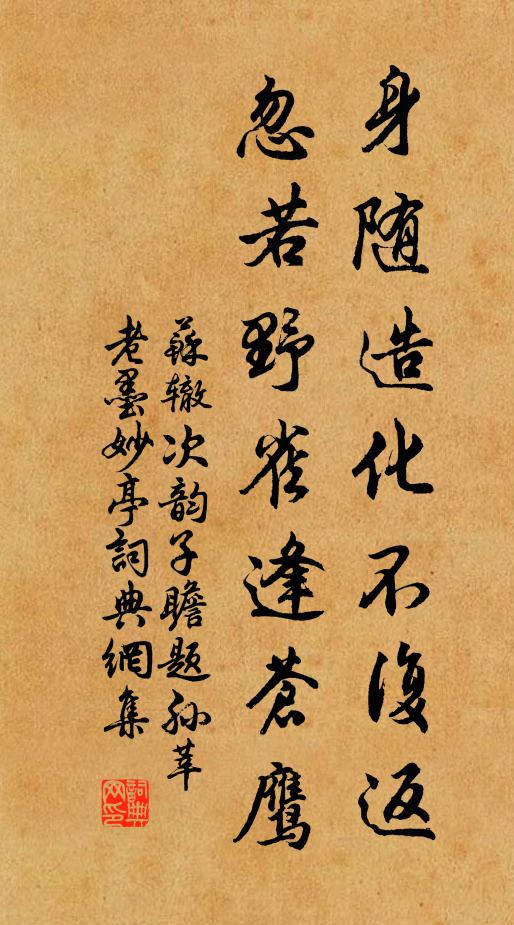 身随造化不復返
忽若野雀逢蒼鷹
蘇辙次韵子瞻题孙莘
老墨妙亭詞典網集
詞典
网印